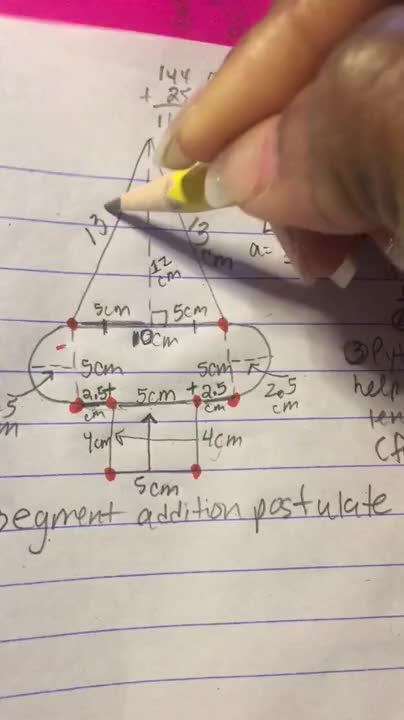 144
+ 25
13
13
cm
a=
12
cm
5cm
5cm
10cm
③
5cm
5cm
help
2.5
cm
2.5+
cm
5cm
+2.5
cm
4cm
4cm
5cm
segment addition postulate